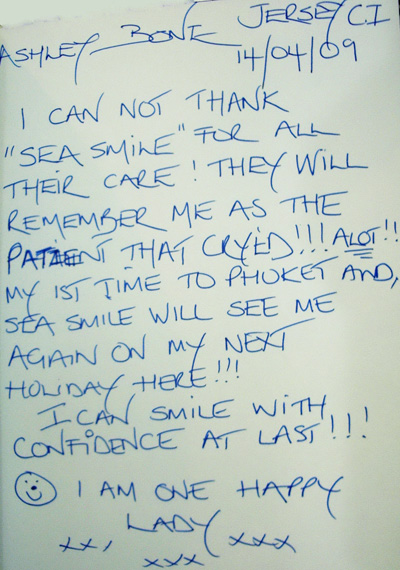 ASHLEY BONE JERSEY C.I
14/04/09
I CAN NOT THANK
"SEA SMILE" FOR ALL
THEIR CARE! THEY WILL
REMEMBER ME AS THE
PATIENT THAT CRYED!!! ALOT!!
MY 1ST TIME TO PHUKET AND,
SEA SMILE WILL SEE ME
AGAIN ON MY NEXT
HOLIDAY HERE!!!
I CAN SMILE WITH
CONFIDENCE AT LAST!!!
I AM ONE HAPPY
LADY
xx, xxx xxx